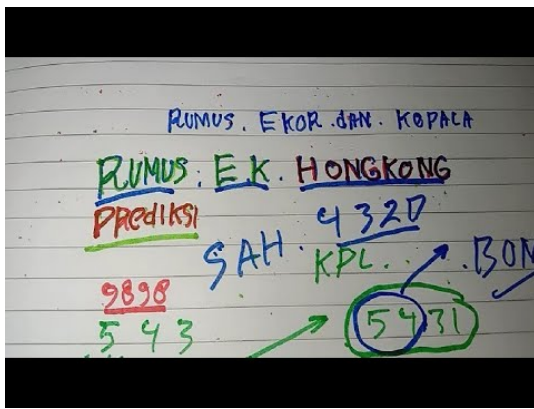 RUMUS. EKOR. dAN. KOPALA
RUMUS. E K. HONGKONG
PREdIKSI 4320
SAH. KPL. . BON
9898
5 4 3 5431